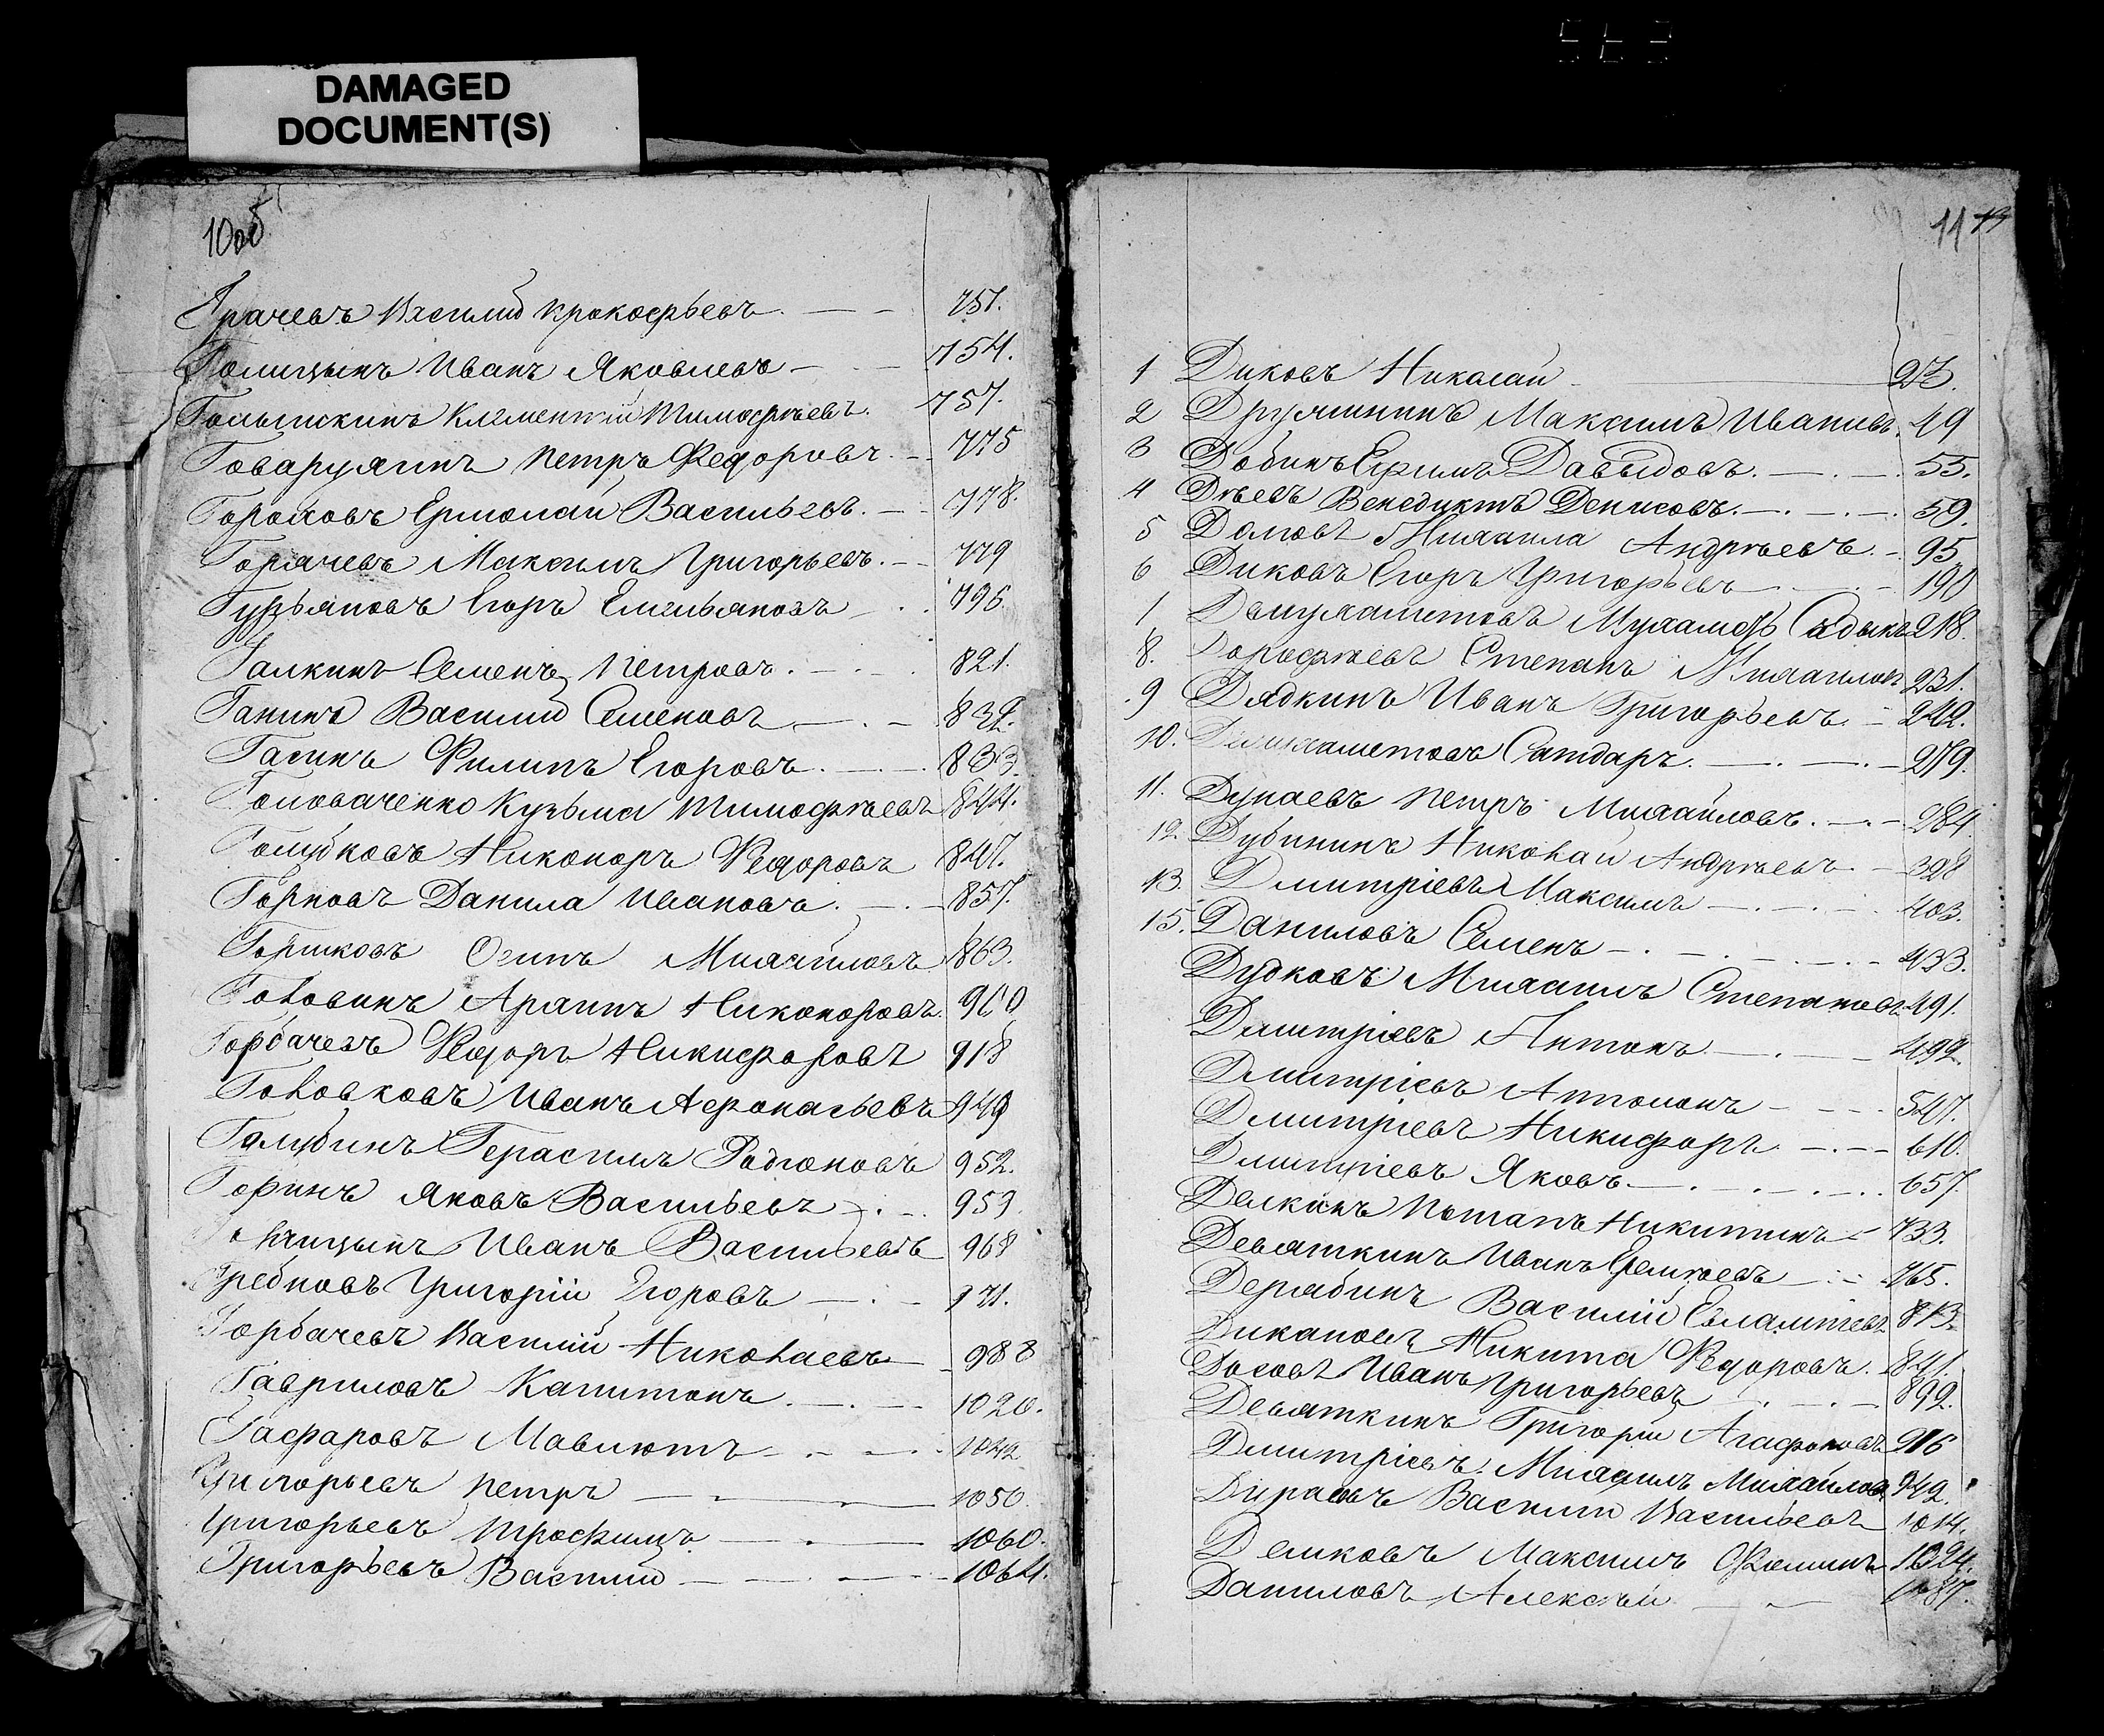 DAMAGED
DOCUMENT(S)
10об
Грачевъ Василий Прокофьевъ. — — 751.
Голицынъ Иванъ Яковлевъ — — 754.
Голышкинъ Клементий Тимофѣевъ. 757.
Говарухинъ Петръ Федоровъ. — 775
Гороховъ Ермолай Васильевъ. — 778.
Горячевъ Максимъ Григорьевъ. — 779
Гурьяновъ Егоръ Емельяновъ — . 795
Галкинъ Семенъ Петровъ. — . — . 821.
Ганинъ Василий Семеновъ — . —
Гасинъ Филипъ Егоровъ. — . — . 833.
Головаченко Кузьма Тимофѣевъ 844.
Голубковъ Никоноръ Федоровъ 847.
Горновъ Данила Ивановъ. — . — 857.
Горшковъ Осипъ Михайловъ 863.
Головинъ Архипъ Никоноровъ. 900
Горбачевъ Федоръ Никифоровъ 918
Головковъ Иванъ Афонасьевъ 949
Голубинъ Герасимъ Родіоновъ 952.
Горинъ Яковъ Васильевъ — . — 959
Иванъ Васильевъ 968
Гребновъ Григорій Егоровъ — . — 971.
Горбачевъ Василий Николаевъ — 988
Гавриловъ Капитонъ. — . — 1020.
Гафаровъ Мавлютъ — . — . 1042
Григорьевъ Петръ — — — 1050.
Григорьевъ Трофимъ — . — 1060.
Григорьевъ Василий — — . — 1064.
11
1 Диковъ Николай 23.
2 Дружининъ Максимъ Ивановъ. 49
3 Добинъ Ефимъ Давыдовъ. — . — . 55.
4 Дѣевъ Венедиктъ Денисовъ. — . — . 59.
5 Домовъ Михаила Андрѣевъ. — 95
6 Диковъ Егоръ Григорьевъ — . — 190
1 Мухамедъ Садыкъ 218.
8. Дорофѣевъ Степанъ Михаиловъ 231.
9 Дядкинъ Иванъ Григорьевъ. — 242.
10. Сатдаръ. — . — . — 279.
11. Дунаевъ Петръ Михайловъ. — . — 284
12. Дубининъ Николай Андрѣевъ. — 328
13. Дмитріевъ Максимъ — . — . 403.
15. Даниловъ Семенъ — . — . — . — 433.
Дудковъ Михаилъ Степановъ 491.
Дмитріевъ Антонъ — . — 492.
Дмитріевъ Антонъ — — — . 547.
Дмитріевъ Никифоръ. — . — 610.
Дмитріевъ Яковъ. — . — . — . . 657.
Делкинъ Потапъ Никитинъ — 733.
Девяткинъ Иванъ Еремѣевъ — . — 765.
Дерябинъ Василій Евлампіевъ 813.
Дикановъ Никита Федоровъ. 841.
Досовъ Иванъ Григорьевъ . — . — 899.
Девяткинъ Григорій Агафоновъ 916
Дмитріевъ Михаилъ Михайловъ 942.
Василий Васильевъ 1014.
Демковъ Максимъ Фоминъ 1024.
Даниловъ Алексѣй — —